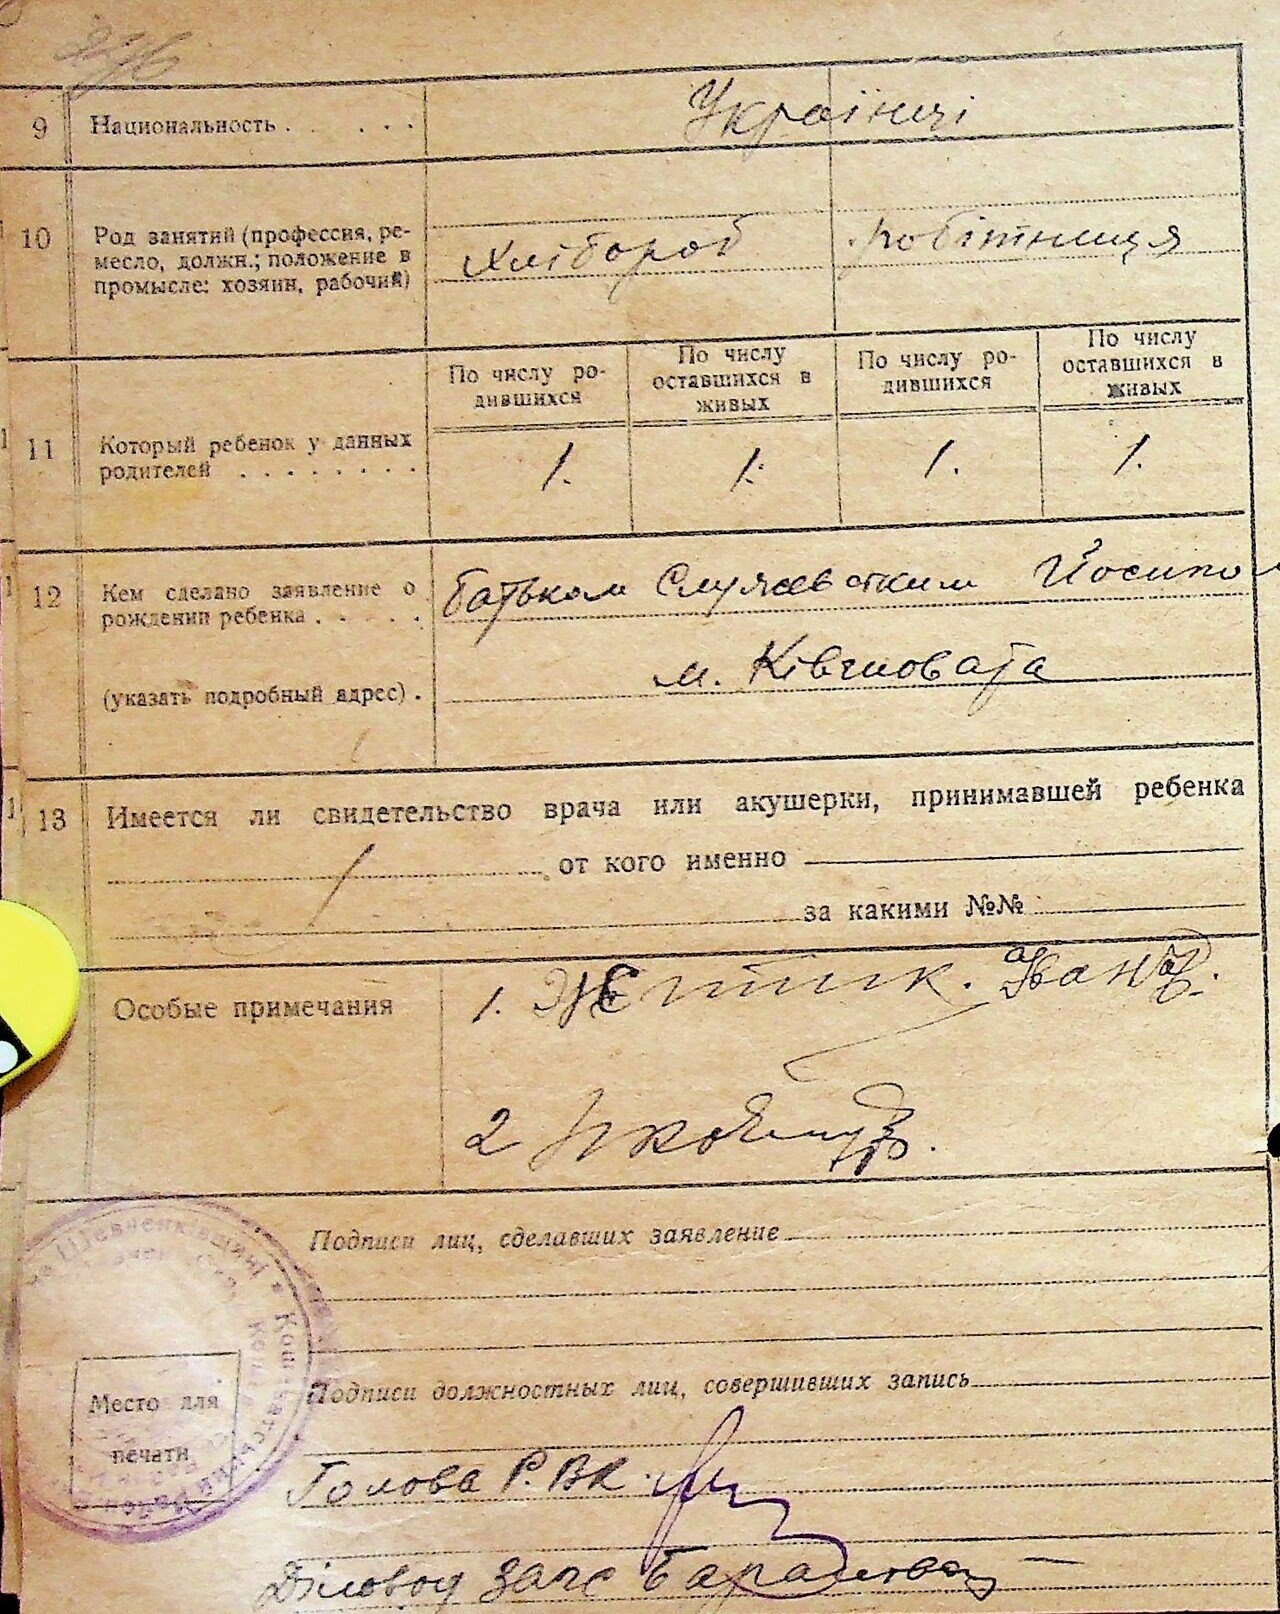 276
9 Национальность . . . . . . Українці
10 Род занятий (профессия, ре-
месло, должн.; положение в
промысле: хозяин, рабочий)
Хлібороб робітниця
По числу ро-
дившихся
По числу
оставшихся в
живых
По числу ро-
дившихся
По числу
оставшихся в
живых
11 Который ребенок у данных
родителей . . . . . . . .
1. 1. 1. 1.
12 Кем сделано заявление о
рождении ребенка . . . . .
Батьком Йосипом
(указать подробный адрес) .
м. Ківшовата
13 Имеется ли свидетельство врача или акушерки, принимавшей ребенка
от кого именно
за какими №№
Особые примечания
1.
2
Подписи лиц, сделавших заявление
Подписи должностных лиц, совершивших запись
Место для
печати
Голова Р.В.К.
Діловод Загс
Шевченківщині